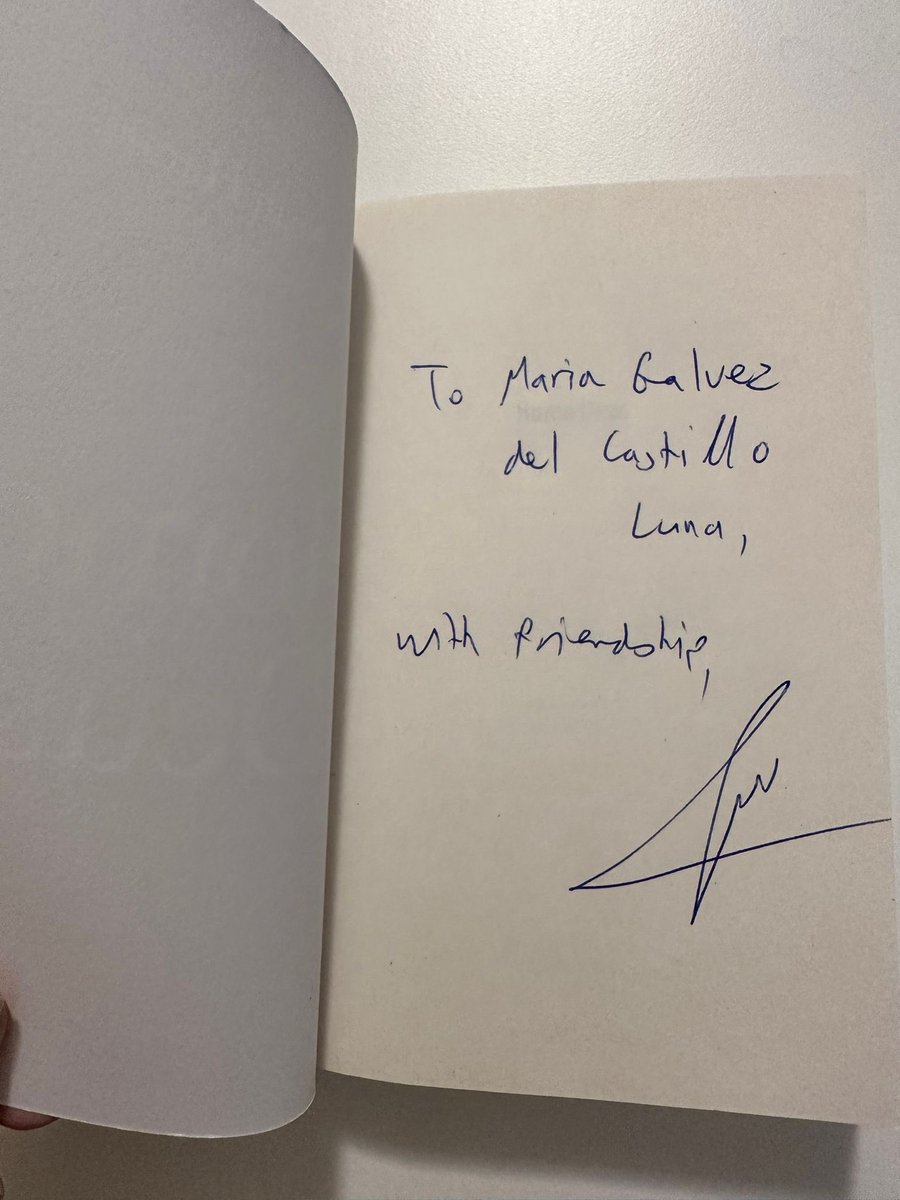 To Maria Galvez
del Castillo
Luna,
with friendship,